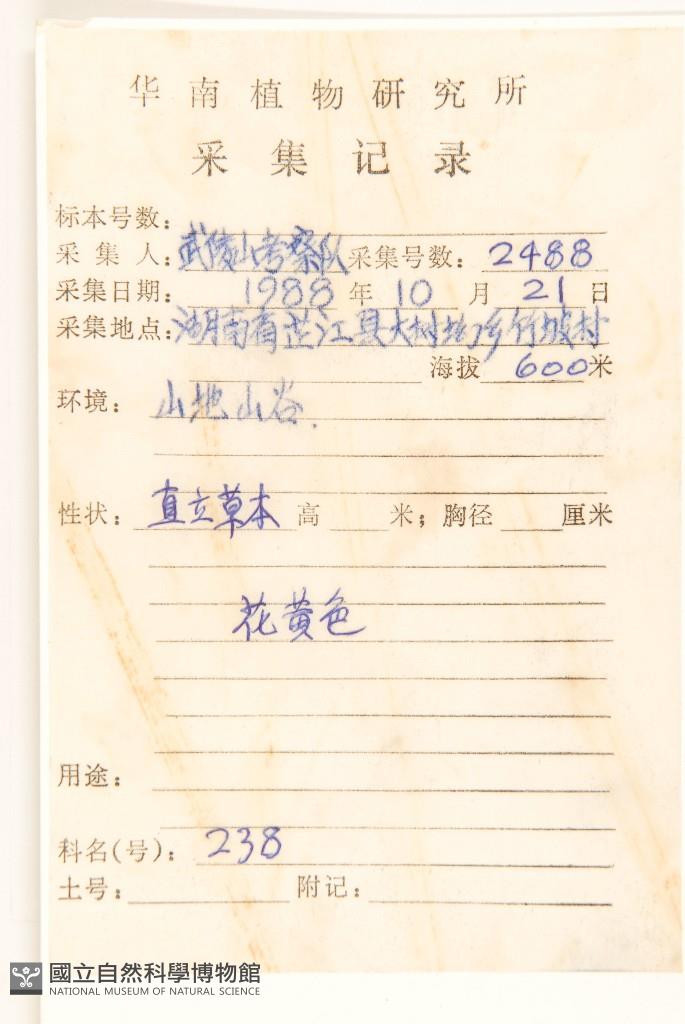 华南植物研究所
采集记录
标本号数：
采集人：武陵山考察队 采集号数：2488
采集日期：1988年10月21日
采集地点：湖南省芷江县大树坳乡竹坡村
海拔 600米
环境：山地山谷.
性状：直立草本 高 米；胸径 厘米
花黄色
用途：
科名(号)：238
土号： 附记：
國立自然科學博物館
NATIONAL MUSEUM OF NATURAL SCIENCE